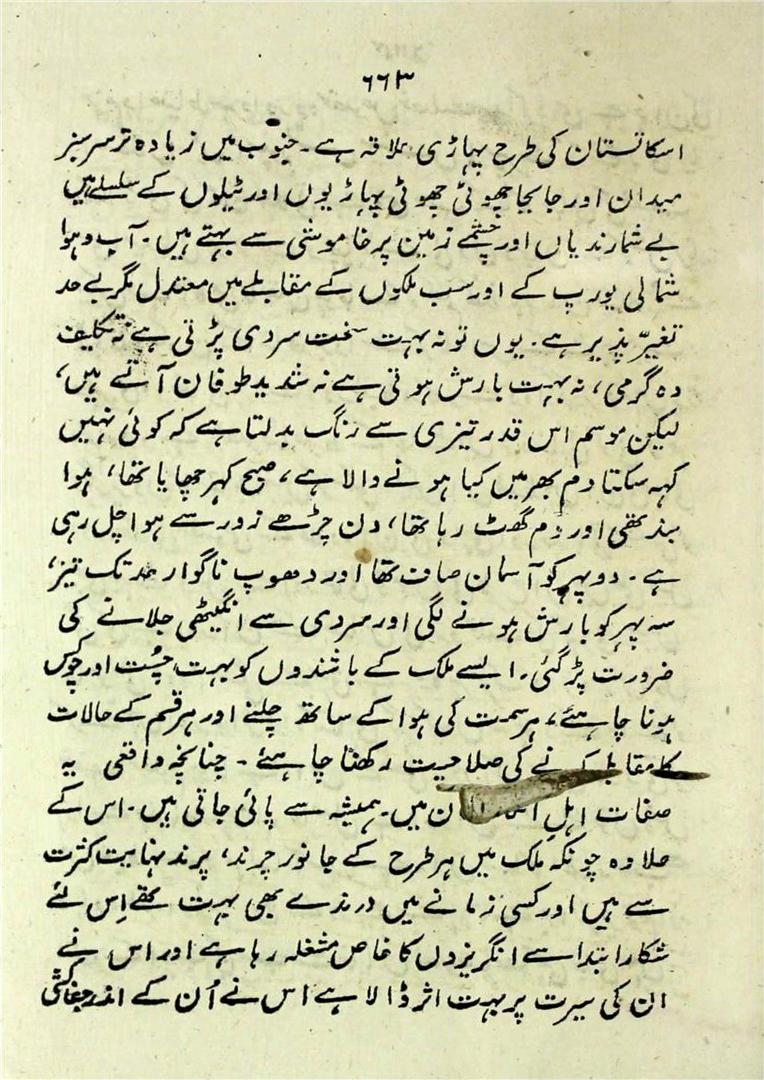 ۶۶۳
اسکاتستان کی طرح پہاڑی علاقہ ہے۔ جنوب میں زیادہ تر سرسبز
میدان اور جا بجا چھوٹی چھوٹی پہاڑیوں اور ٹیلوں کے سلسلے ہیں
بے شمار ندیاں اور چشمے زمین پر خاموشی سے بہتے ہیں۔ آب و ہوا
شمالی یورپ کے اور سب ملکوں کے مقابلے میں معتدل مگر بے حد
تغیّر پذیر ہے۔ یوں تو نہ بہت سخت سردی پڑتی ہے نہ تکلیف
دہ گرمی، نہ بہت بارش ہوتی ہے نہ شدید طوفان آتے ہیں،
لیکن موسم اس قدر تیزی سے رنگ بدلتا ہے کہ کوئی نہیں
کہہ سکتا دم بھر میں کیا ہونے والا ہے، صبح کہر چھایا تھا، ہوا
بند تھی اور دم گھٹ رہا تھا، دن چڑھے زور سے ہوا چل رہی
ہے۔ دوپہر کو آسمان صاف تھا اور دھوپ ناگوار حد تک تیز،
سہ پہر کو بارش ہونے لگی اور سردی سے انگیٹھی جلانے کی
ضرورت پڑ گئی۔ ایسے ملک کے باشندوں کو بہت چُست اور چوکس
ہونا چاہئے، ہر سمت کی ہوا کے ساتھ چلنے اور ہر قسم کے حالات
کا مقابلہ کرنے کی صلاحیت رکھنا چاہئے۔ چنانچہ واقعی یہ
صفات اہلِ میں۔ ہمیشہ سے پائی جاتی ہیں۔ اس کے
علاوہ چونکہ ملک میں ہر طرح کے جانور چرند، پرند نہایت کثرت
سے ہیں اور کسی زمانے میں درندے بھی بہت تھے اِس لئے
شکار ابتدا سے انگریزوں کا خاص مشغلہ رہا ہے اور اس نے
ان کی سیرت پر بہت اثر ڈالا ہے اس نے اُن کے اندر جفاکشی